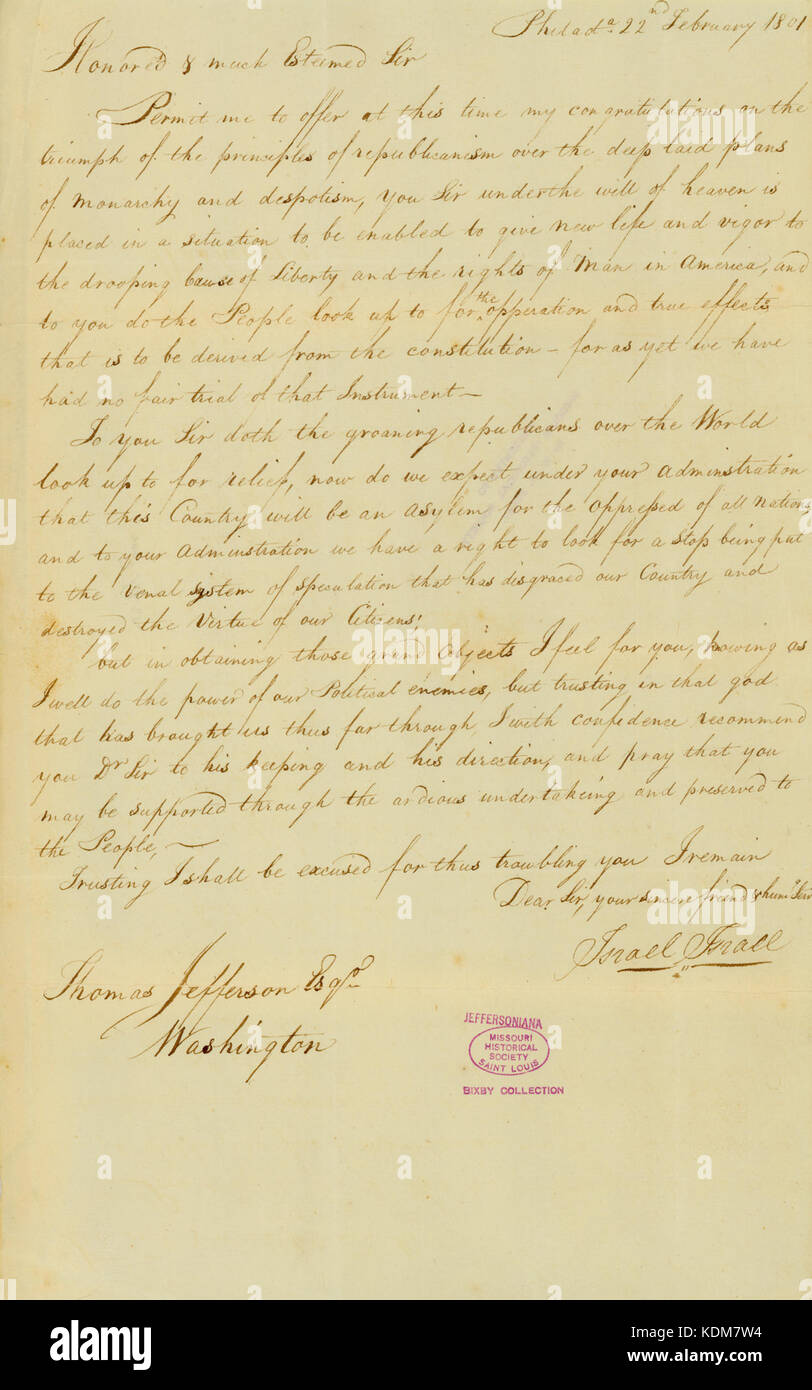 Philada. 22nd February 1801
Honored & much Esteemed Sir
Permit me to offer at this time my congratulations on the
triumph of the principles of republicanism over the deep laid plans
of Monarchy and despotism, you Sir under the will of heaven is
placed in a situation to be enabled to give new life and vigor to
the drooping Cause of Liberty and the rights of Man in America, and
to you do the People look up to for the opperation and true effects
that is to be derived from the constitution – for as yet we have
had no fair trial of that Instrument –
To you Sir doth the groaning republicans over the World
look up to for relief, now do we expect under your adminstration
that this Country will be an asylem for the oppressed of all nations
and to your adminstration we have a right to look for a stop being put
to the venal system of speculation that has disgraced our Country and
destroyed the Virtue of our Citizens!
but in obtaining those grand Objects I feel for you, knowing as
I well do the power of our Political enemies, but trusting in that god
that has brought us thus far through I with confidence recommend
you Dr Sir to his keeping and his direction, and pray that you
may be supported through the ardious undertakeing and preserved to
the People, –
Trusting I shall be excused for thus troubling you I remain
Dear Sir, your sincere friend & huml Servt
Israel Israel
Thomas Jefferson Esqr.
Washington
JEFFERSONIANA
MISSOURI
HISTORICAL
SOCIETY
SAINT LOUIS
BIXBY COLLECTION
alamy
Image ID: KDM7W4
www.alamy.com